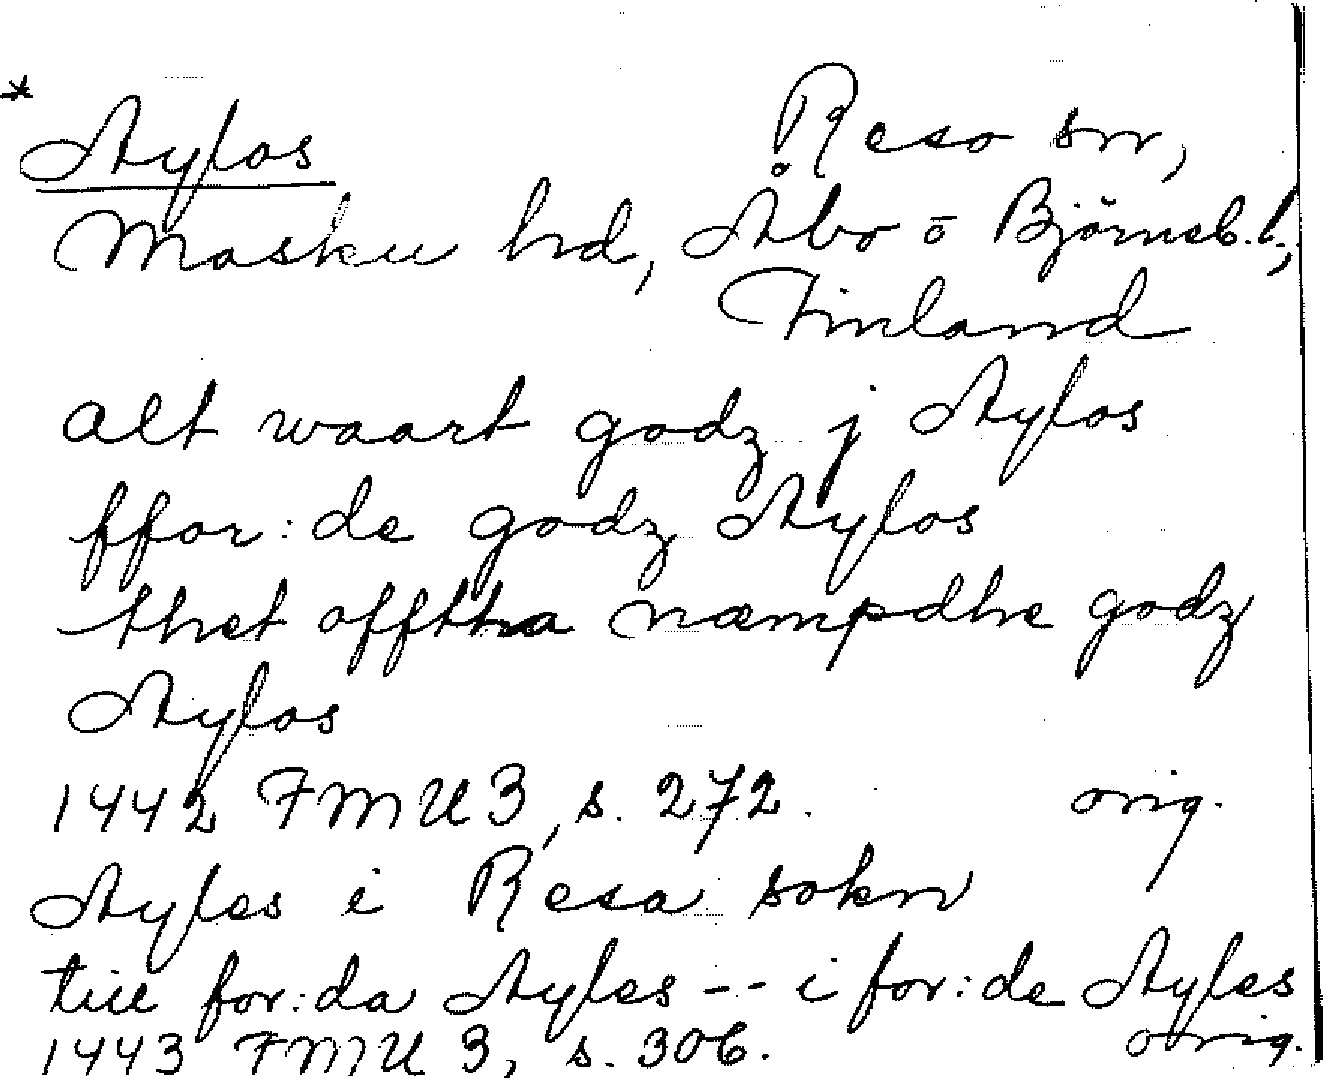 * Aylos Reso sn,
Masku hd, Åbo o Björneb. l.,
Finland
alt waart godz j Aylos
ffor:de godz Aylos
thet offtha næmpdhe godz
Aylos
1442 FMU 3, s. 272. orig.
Ayles i Resa sokn
till for:da Ayles -- i for:de Ayles
1443 FMU 3, s. 306. orig.